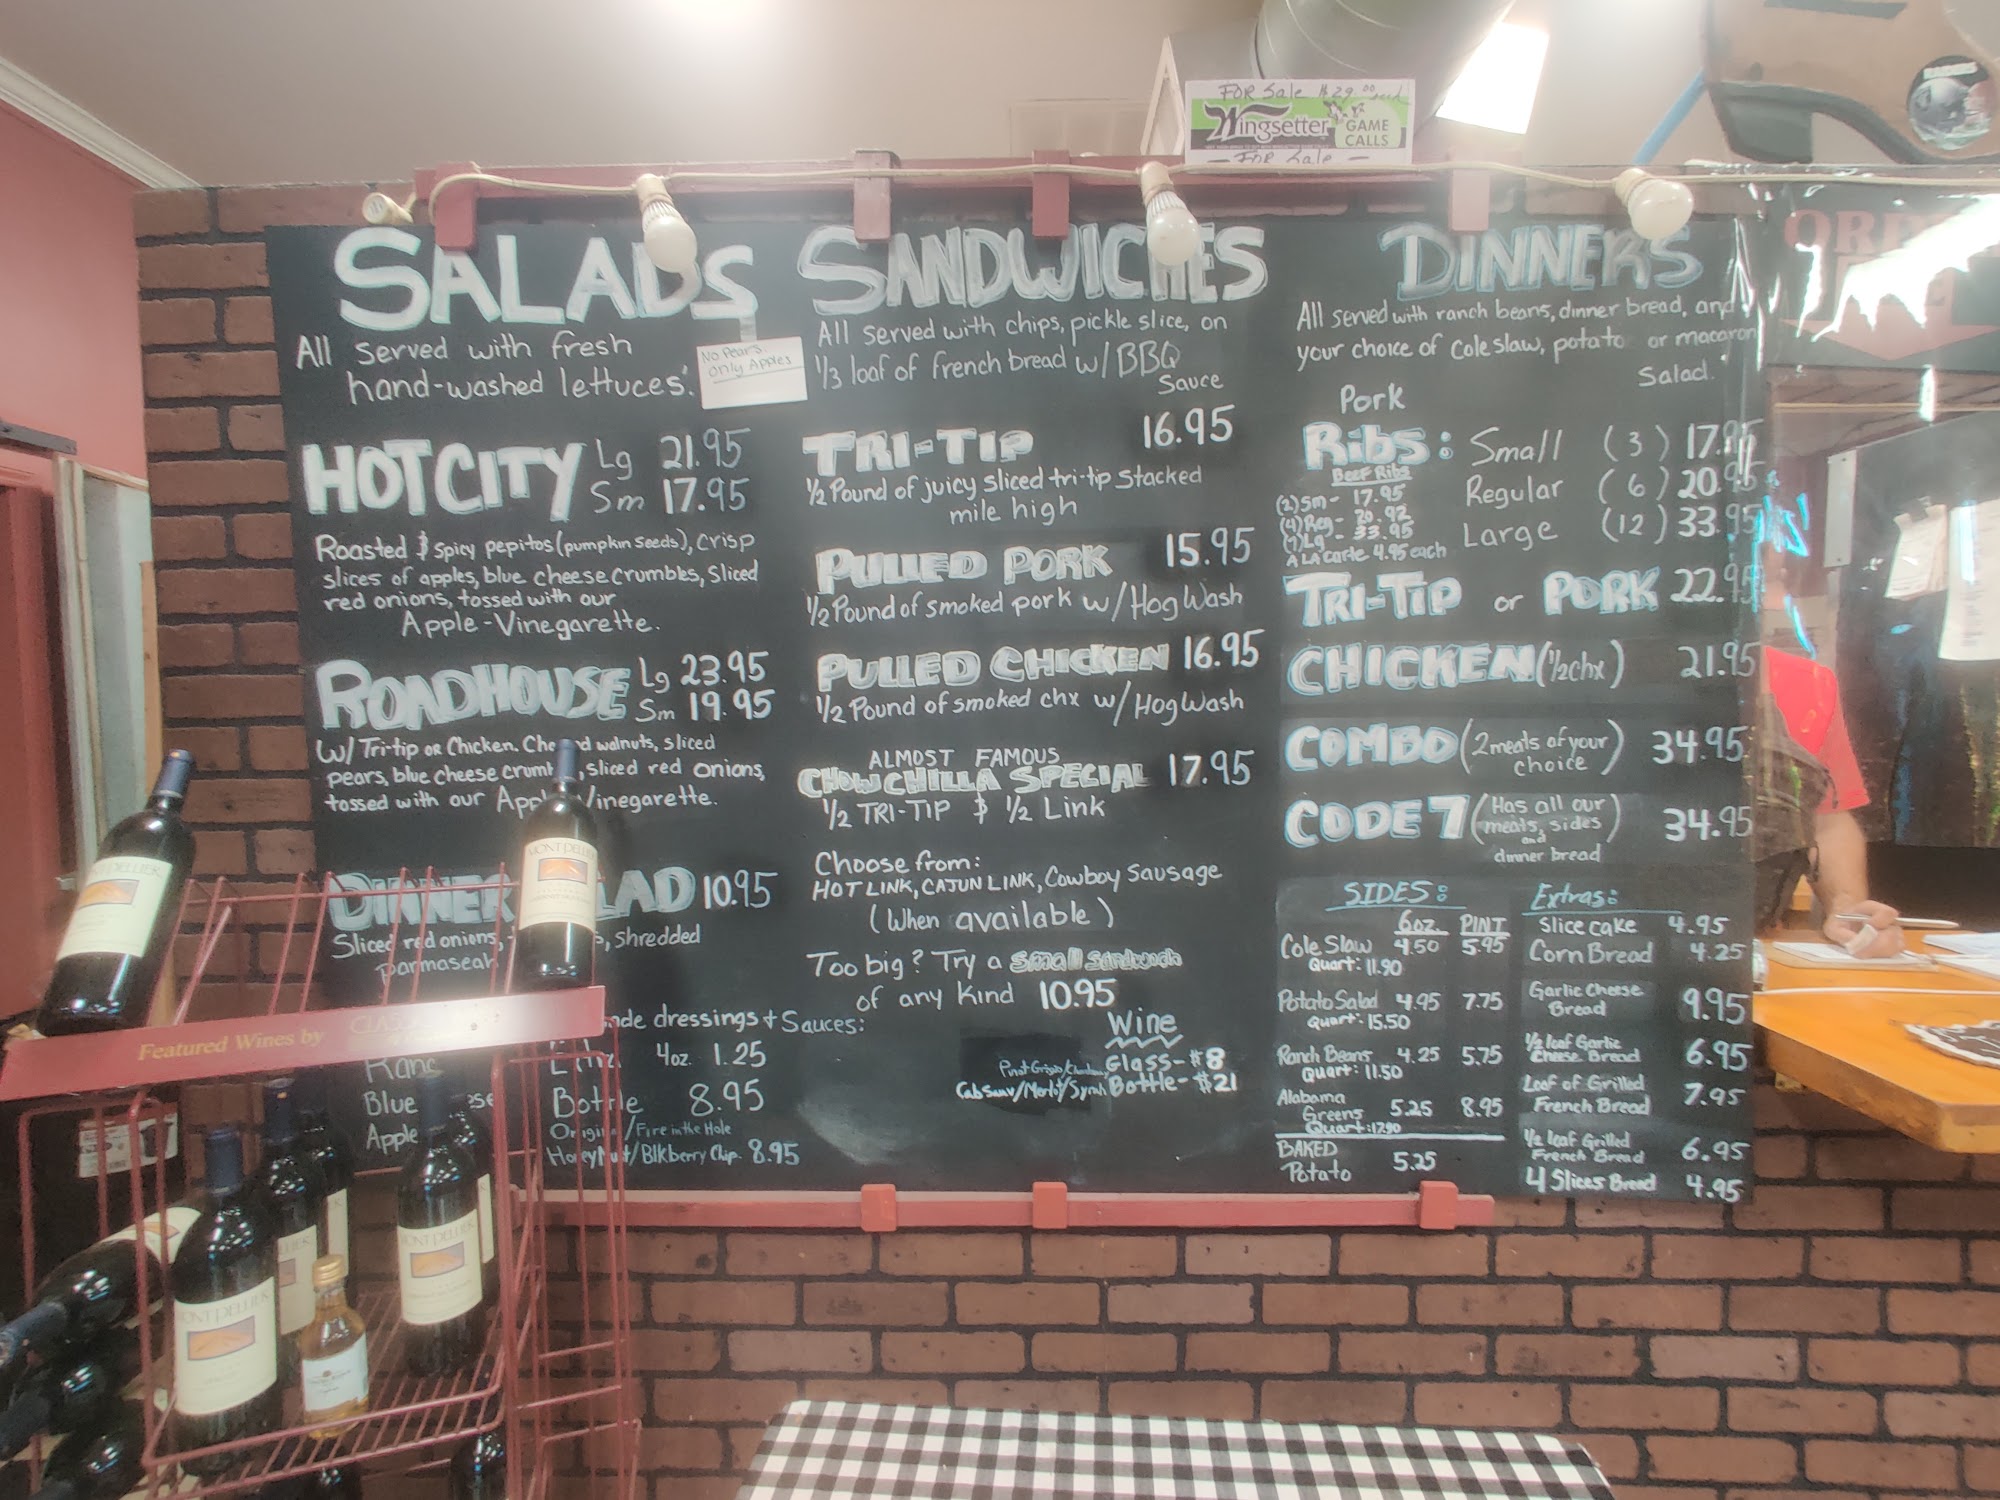 FOR Sale $29.00 each
Wingsetter
GAME
CALLS
— FOR Sale —
RAIDERS
SALADS
All served with fresh
hand-washed lettuces.
No Pears.
Only Apples
HOT CITY Lg 21.95
Sm 17.95
Roasted & spicy pepitos (pumpkin seeds), crisp
slices of apples, blue cheese crumbles, sliced
red onions, tossed with our
Apple-Vinegarette.
ROADHOUSE Lg 23.95
Sm 19.95
W/ Tri-tip OR Chicken. walnuts, sliced
pears, blue cheese , sliced red onions,
tossed with our
DINNER 10.95
Sliced red onions, shredded
parmasean
dressings & Sauces:
4oz. 1.25
Blue
Bottle 8.95
Apple
Original/Fire in the Hole
Honey Nut/Blkberry Chip. 8.95
SANDWICHES
All served with chips, pickle slice, on
1/3 loaf of french bread w/ BBQ
Sauce
TRI-TIP 16.95
1/2 Pound of juicy sliced tri-tip stacked
mile high
PULLED PORK 15.95
1/2 Pound of smoked pork w/ Hog Wash
PULLED CHICKEN 16.95
1/2 Pound of smoked chx w/ Hog Wash
ALMOST FAMOUS
CHOWCHILLA SPECIAL 17.95
1/2 TRI-TIP & 1/2 Link
Choose from:
HOT LINK, CAJUN LINK, Cowboy Sausage
(When available)
Too big? Try a small sandwich
of any Kind 10.95
Wine
Pinot Grigio/ Glass- $8
Cab Sauv/Merlot/Syrah Bottle- $21
DINNERS
All served with ranch beans, dinner bread, and
your choice of Cole slaw, potato or macaroni
Salad.
Pork
Ribs: Small (3) 17.95
Regular (6) 20.95
Large (12) 33.95
Beef Ribs
(2) Sm - 17.95
(4) Reg - 20.92
(7) Lg - 33.95
A LA Carte 4.95 each
TRI-TIP or PORK 22.95
CHICKEN (1/2 chx) 21.95
COMBO (2 meats of your
choice) 34.95
CODE 7 (Has all our
meats, sides
and
dinner bread) 34.95
SIDES:
6oz. PINT
Cole Slaw 4.50 5.95
Quart: 11.90
Potato Salad 4.95 7.75
Quart: 15.50
Ranch Beans 4.25 5.75
Quart: 11.50
Alabama
Greens 5.25 8.95
Quart: 17.90
BAKED
Potato 5.25
Extras:
Slice cake 4.95
Corn Bread 4.25
Garlic Cheese
Bread 9.95
1/2 loaf Garlic
Cheese Bread 6.95
Loaf of Grilled
French Bread 7.95
1/2 loaf Grilled
French Bread 6.95
4 Slices Bread 4.95
Featured Wines by
MONTPELLIER
MONTPELLIER
MONTPELLIER
MONTPELLIER